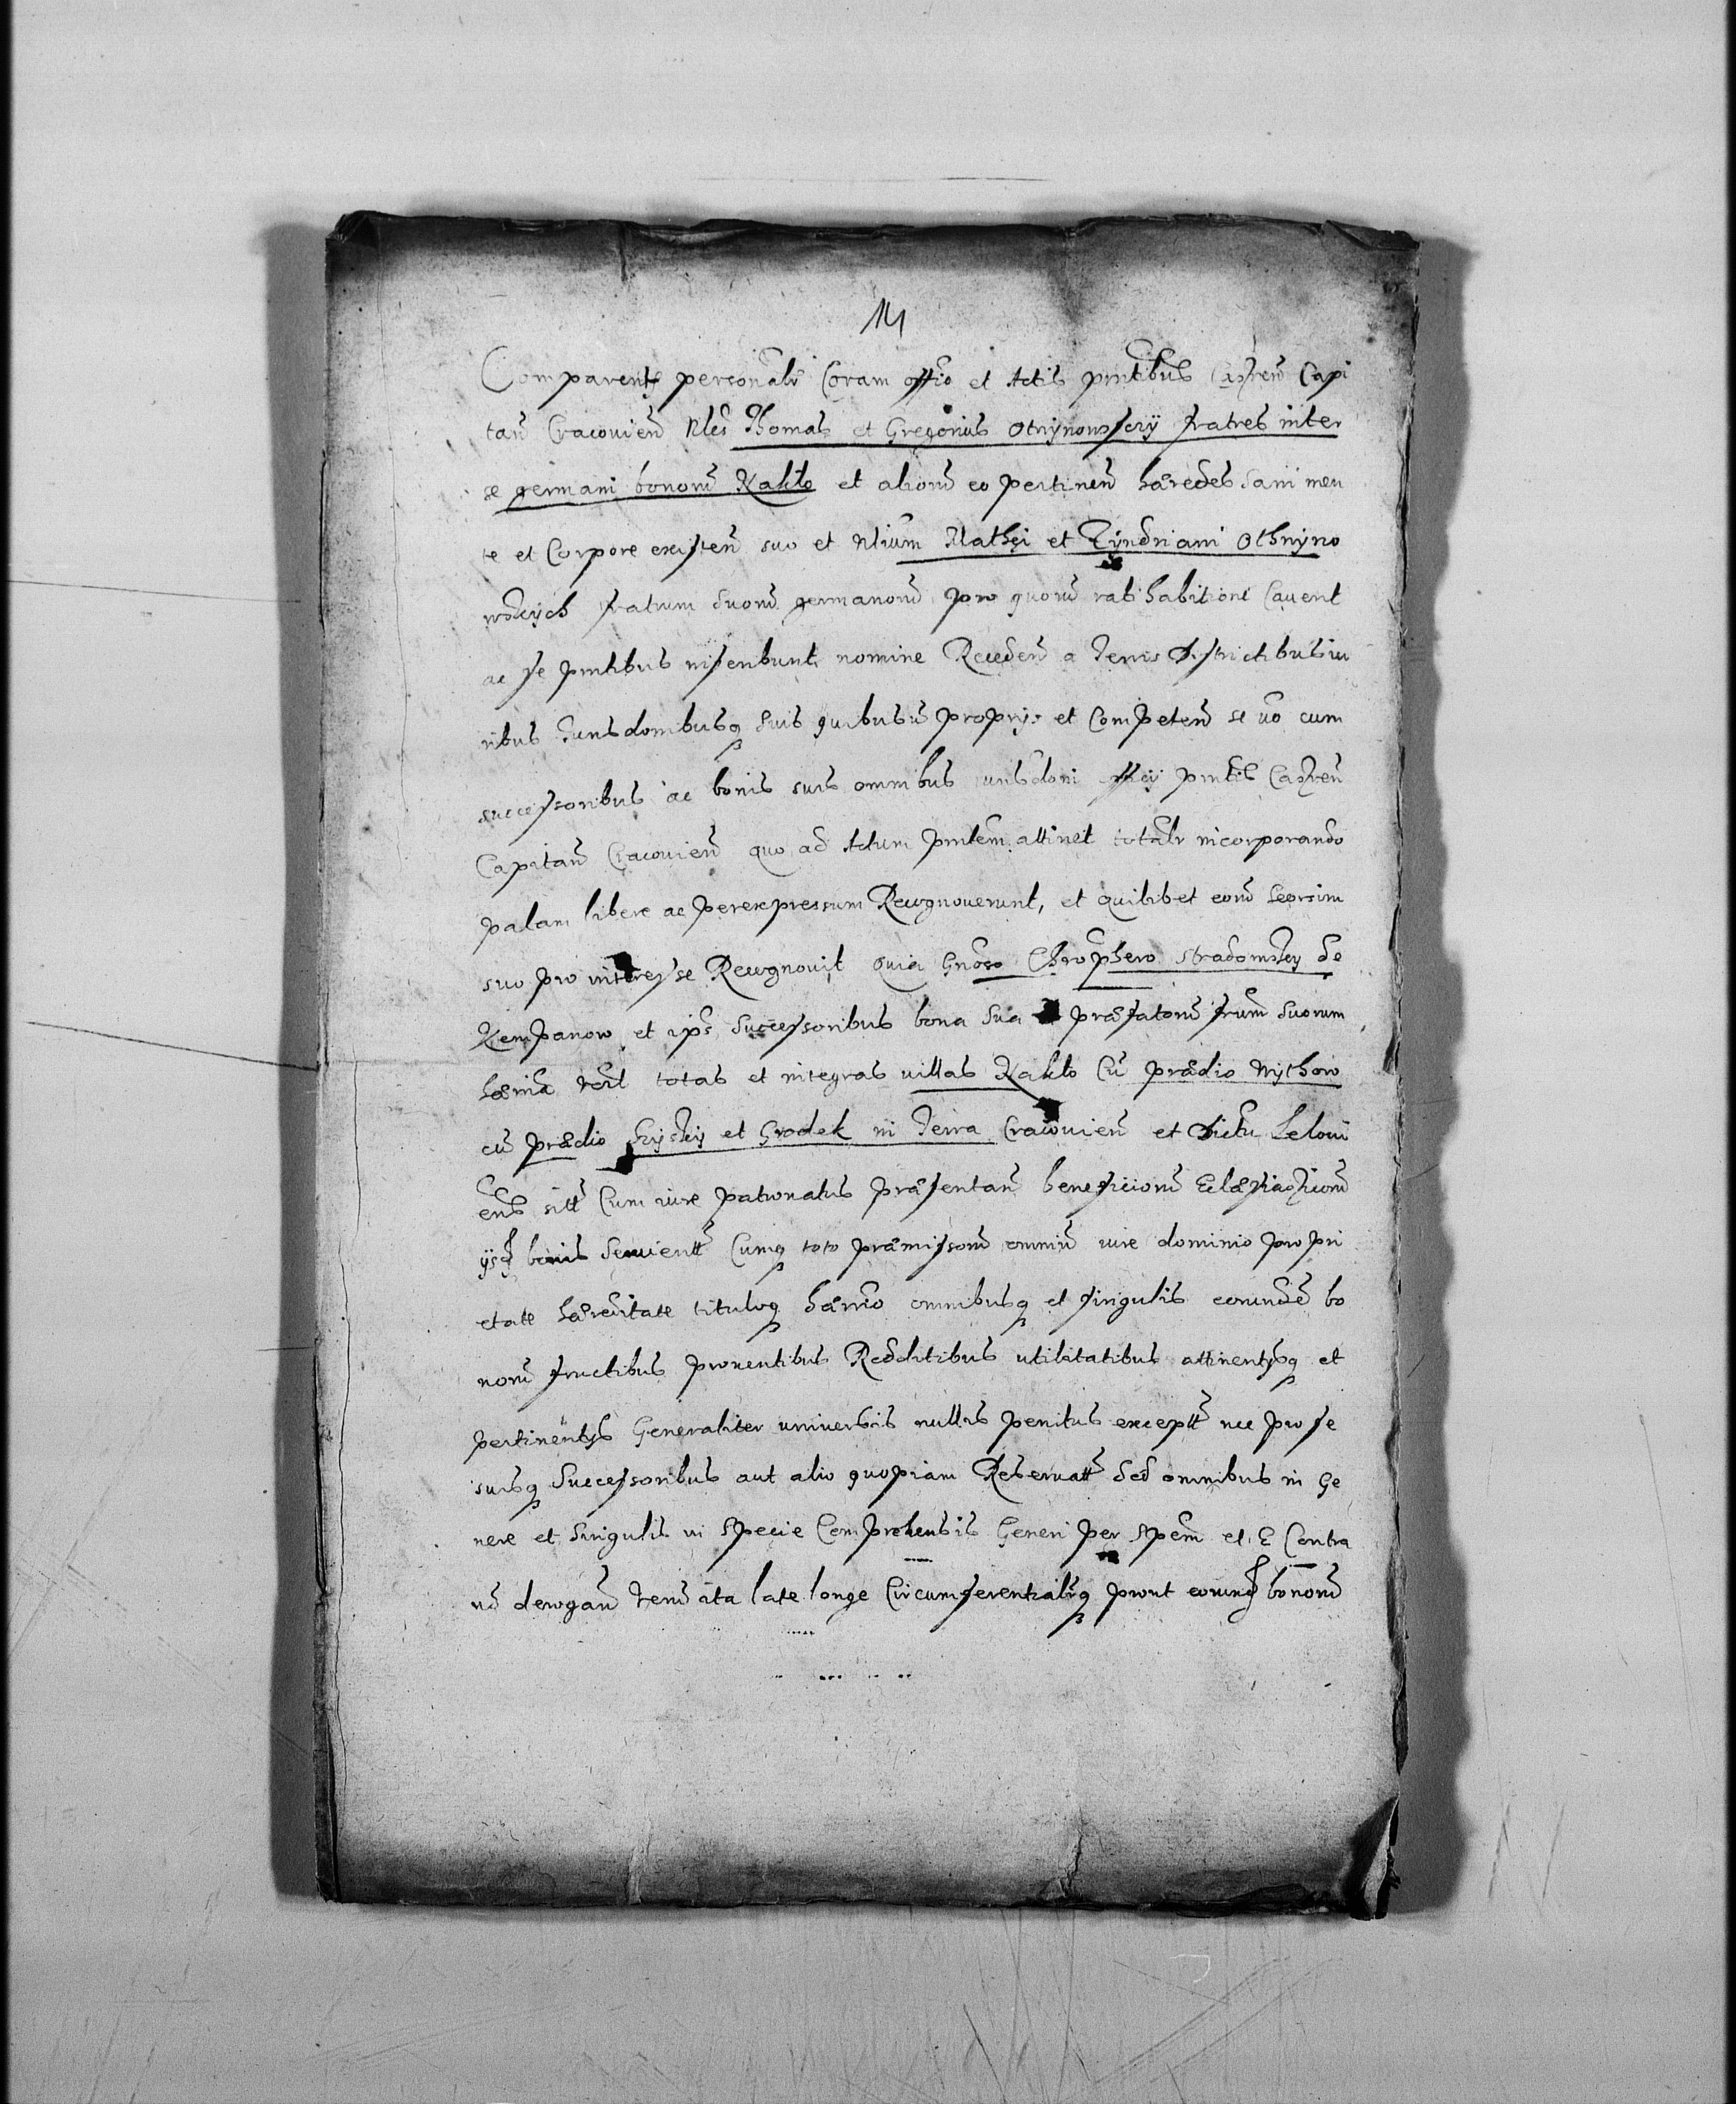 14
Comparentes personalr Coram offio et Actis pntibus Castren Capi
tan Cracovien Nles Thomas et Gregorius Otfinowscy fratres inter
se germani bonoru Naklo et alioru eo pertinen hæredes Sani men
te et Corpore existen suo et Nlium Mathei et Zyndriani Othfyno
wskych fratrum suoru germanoru pro quoru ratihabitione Cavent
ac se pntibus inscribunt nomine Receden a Terris Districtibus iu
ribus Iurisdonibusq suis quibusus proprys et Competen se vo cum
successoribus ac bonis suis omnibus iurisdoni officy pntis Castren
Capitan Cracovien quo ad Actum pntem attinet totalr incorporando
palam libere ac per expressum Recognoverunt, et quilibet eoru seorsim
suo pro interesse Recognovit quia Gnoso Chrophero Stradomsky de
Kempanow et ips Successoribus bona sua præfatoru frum suorum
hæria vert totas et integras villas Naklo Cu prædio Wythow
cu prædio et Grodek in Terra Cracovien et Dictu Lelovi
ens sitt Cum iure patronatus præsentan beneficioru Eclæsiasticoru
ysq bonis Servientt Cumq toto præmissoru omniu iure dominio propri
etate hæreditate tituloq hærrio omnibusq et singulis eorunde bo
noru fructibus proventibus Redditibus utilitatibus attinentysq et
pertinentys Generaliter universis nullis penitus exceptt nec pro se
suisq Successoribus aut alio quopiam Reservatt Sed omnibus in Ge
nere et Singulis in Specie Comprehensis Generi per Spem et E Contra
no derogan Tenu ita late longe Circumferentialrq prout eorund bonoru